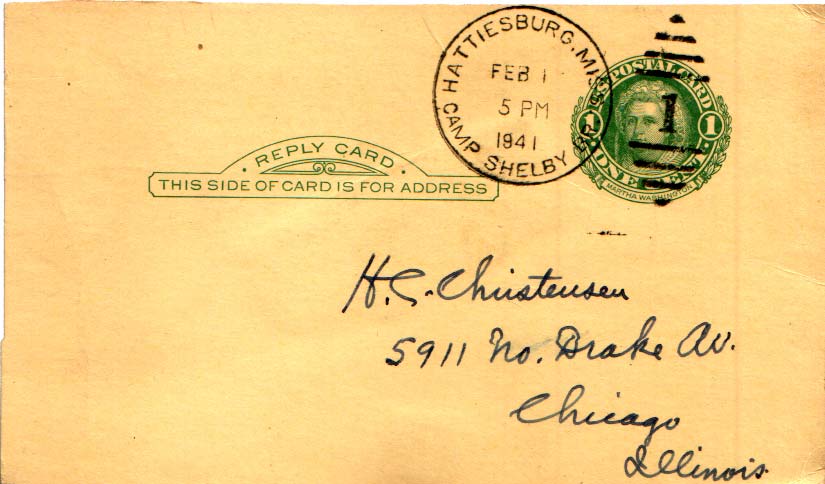 HATTIESBURG, MISS.
FEB 1
5 PM
1941
CAMP SHELBY BR.
U.S. POSTAL CARD
1 1
1
ONE CENT
MARTHA WASHINGTON
REPLY CARD
THIS SIDE OF CARD IS FOR ADDRESS
H.C. Christensen
5911 No. Drake Av.
Chicago
Illinois.